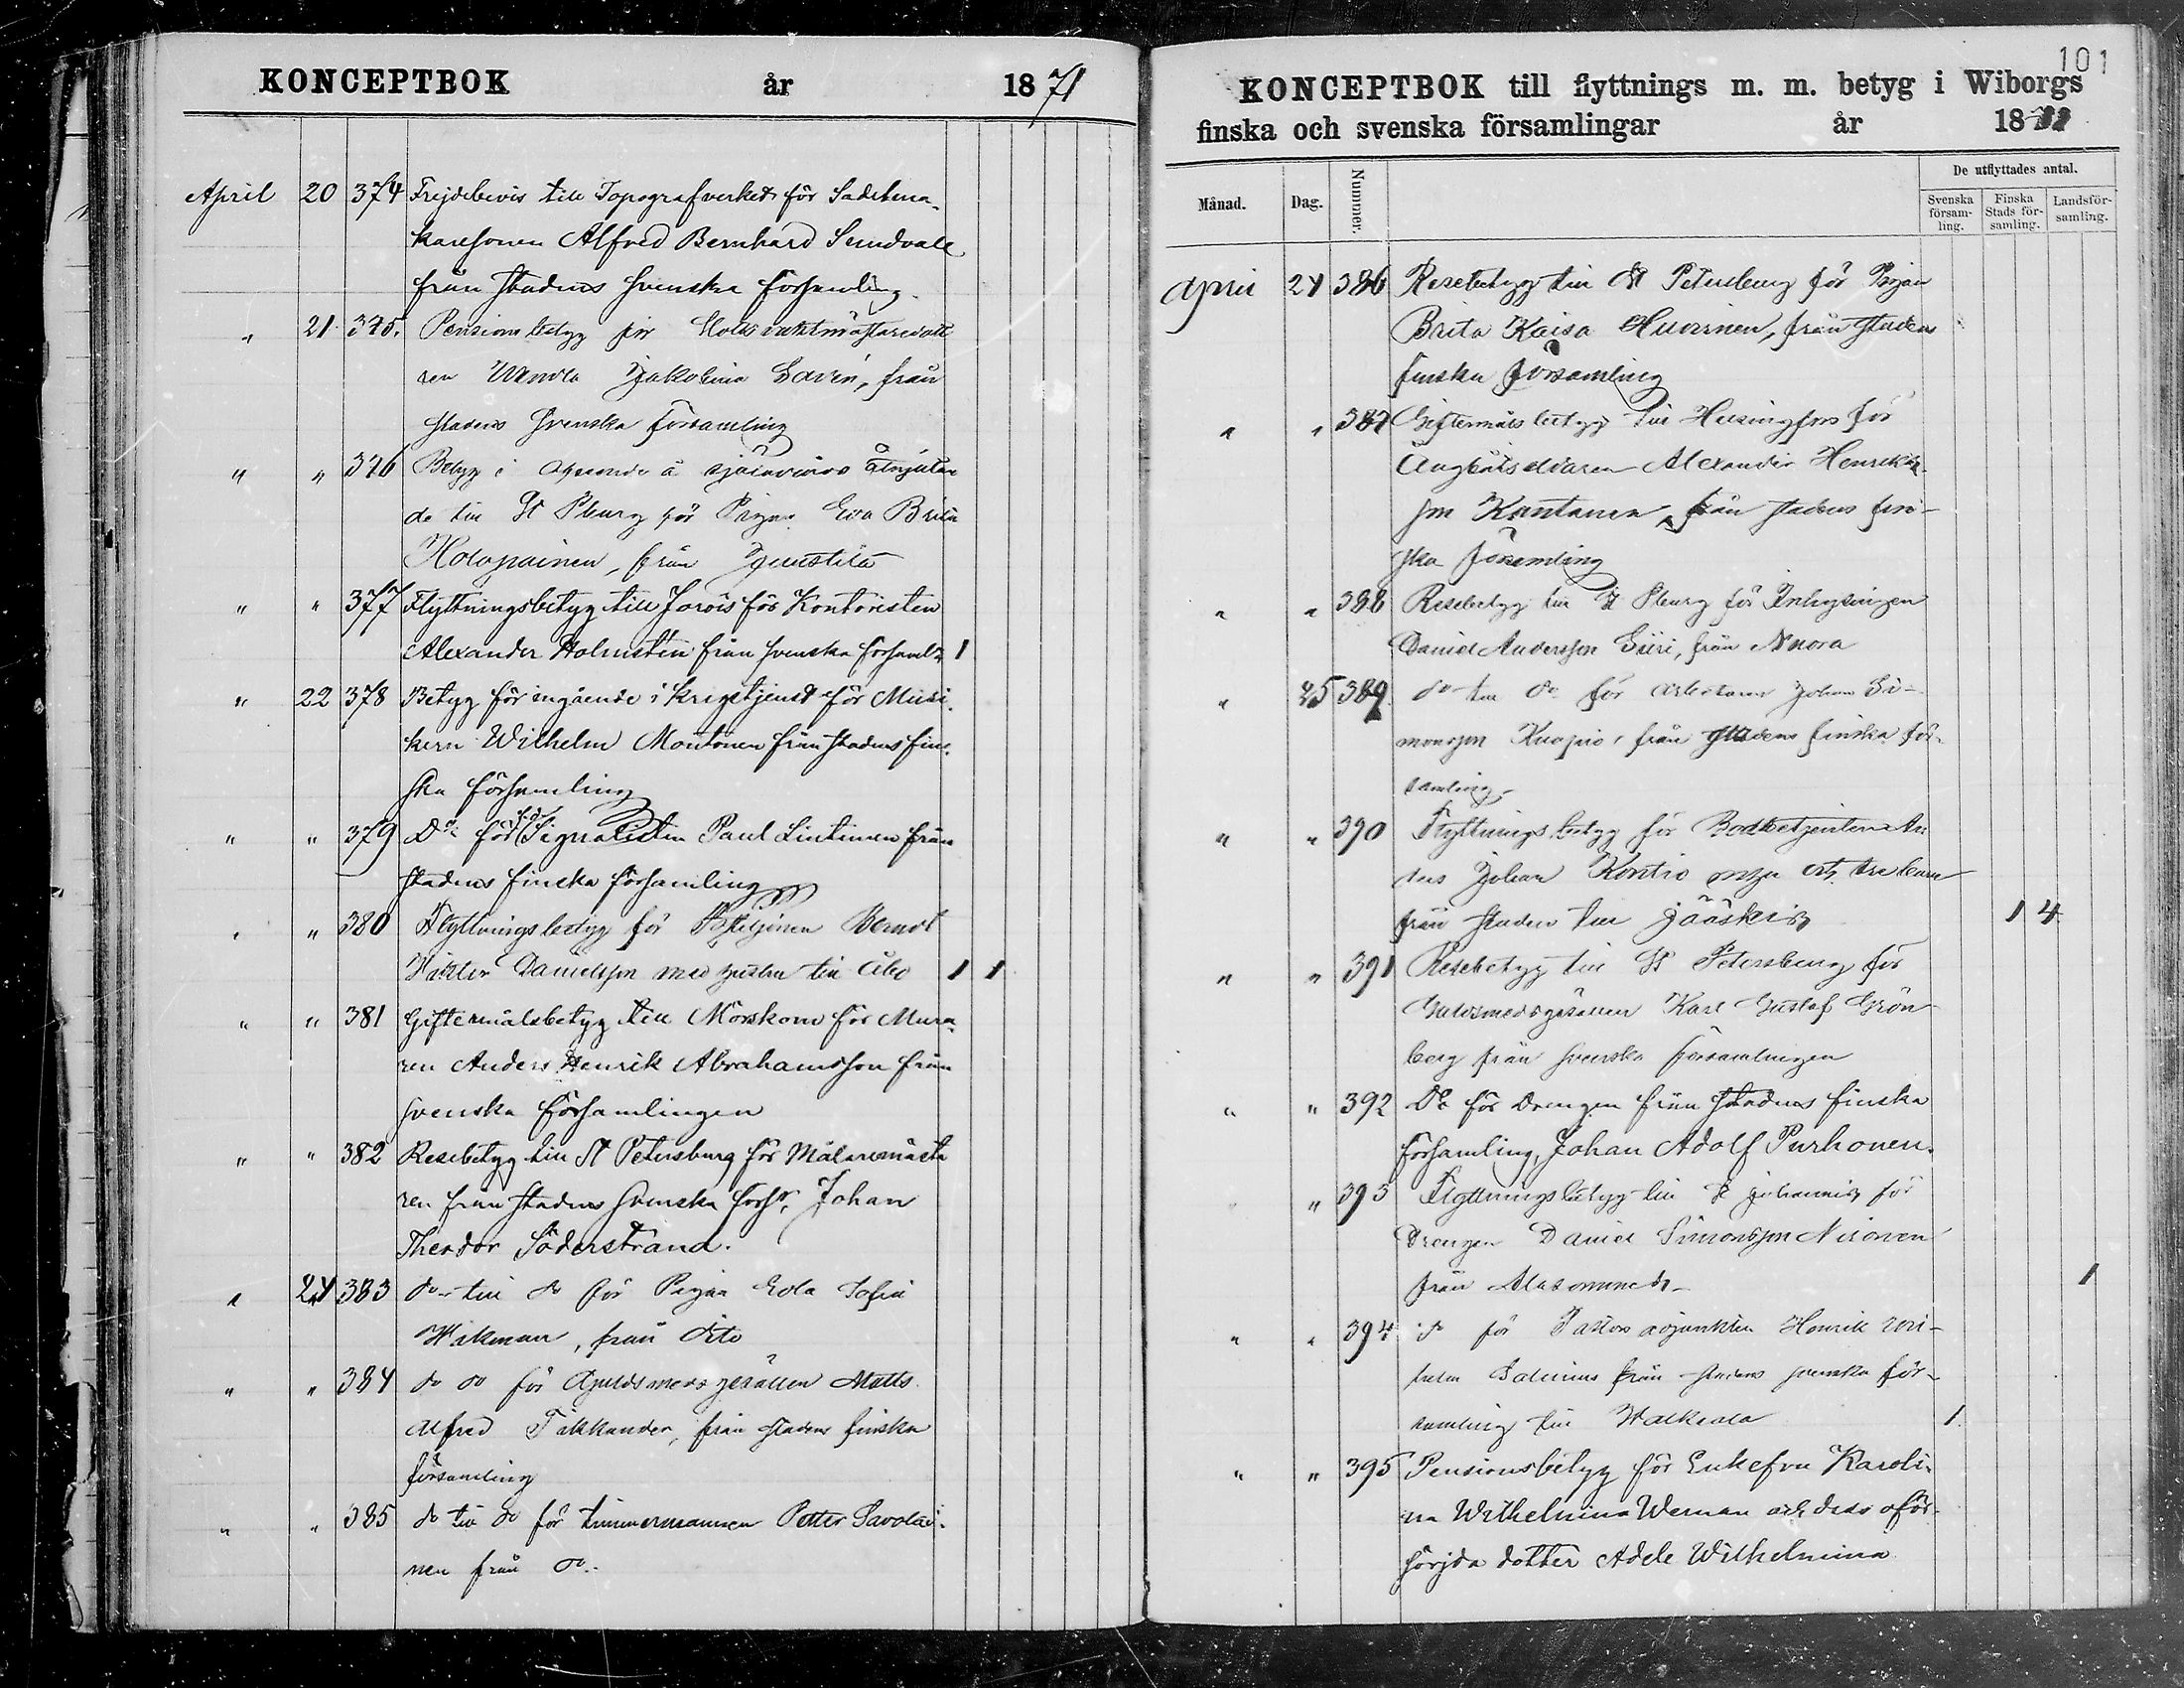 KONCEPTBOK år 1871
April 20 374 Frejdebevis till Topografverket för Sadelma-
karesonen Alfred Bernhard Sundvall
från stadens svenska församling.
" 21. 375. Pensionsbetyg för
ren Jakobina från
stadens svenska församling
" " 376 Betyg i afseende å sjövård åtnjutan
de till St Pburg för Pigan Eva Brita
Holopainen, från
" " 377 Flyttningsbetyg till Jorois för Kontoristen
Alexander Holmstén från svenska församl. 1
" 22 378 Betyg för ingående i krigstjenst för Musi-
kern Wilhelm Montonen från stadens fin-
ska församling
" " 379 Do för f.d. Signalisten Paul Lintinen från
stadens finska församling
" " 380 Flyttningsbetyg för Berndt
Viktor Danielsson med hustru till Åbo 1 1
" " 381 Giftermålsbetyg till Mörskom för Mura-
ren Anders Henrik Abrahamsson från
svenska församlingen
" " 382 Resebetyg till St Petersburg för Målaremästa
ren från stadens svenska förs., Johan
Theodor Söderstrand.
" 24 383 do till do för Pigan Eda Sofia
Wikman, från dito
" " 384 do do för Guldsmedsgesällen Matts
Alfred Tikkander, från stadens finska
församling
" " 385 do till do för timmermannen Petter Savolai-
nen från do.
101
KONCEPTBOK till flyttnings m. m. betyg i Wiborgs
finska och svenska församlingar år 18
Månad. Dag. Nummer. De utflyttades antal.
Svenska försam-ling. Finska Stads för-samling. Landsför-samling.
April 24 386 Resebetyg till St Petersburg för Pigan
Brita Kaisa Huvinen, från stadens
finska församling
" " 387 Giftermålsbetyg till Helsingfors för
Ångbåtseldaren Alexander Henriks-
son Kantanen, från stadens fin-
ska församling
" " 388 Resebetyg till St Pburg för Inhysingen
Daniel Andersson Siiri, från Nuora
" 25 389. do till do för Arbetaren Johan Si-
monsson Kuopio, från stadens finska för-
samling
" " 390 Flyttningsbetyg för Bodbetjenten An
ders Johan Kontio och tre barn
från staden till Jääskis 1 4
" " 391 Resebetyg till St Petersburg för
Guldsmedsgesällen Karl Gustaf Grön-
berg från svenska församlingen
" " 392 Do för Drengen från stadens finska
församling, Johan Adolf Purhonen.
" " 393 Flyttningsbetyg till St Johannis för
Drengen Daniel Simonsson Nironen
från Alasommeh 1
" " 394 do för Pastorsadjunkten Henrik Wil-
helm Salenius från stadens svenska för-
samling till Walkeala 1.
" " 395 Pensionsbetyg för Enkefru Karoli-
na Wilhelmina Weman och dess oför-
sörjda dotter Adele Wilhelmina